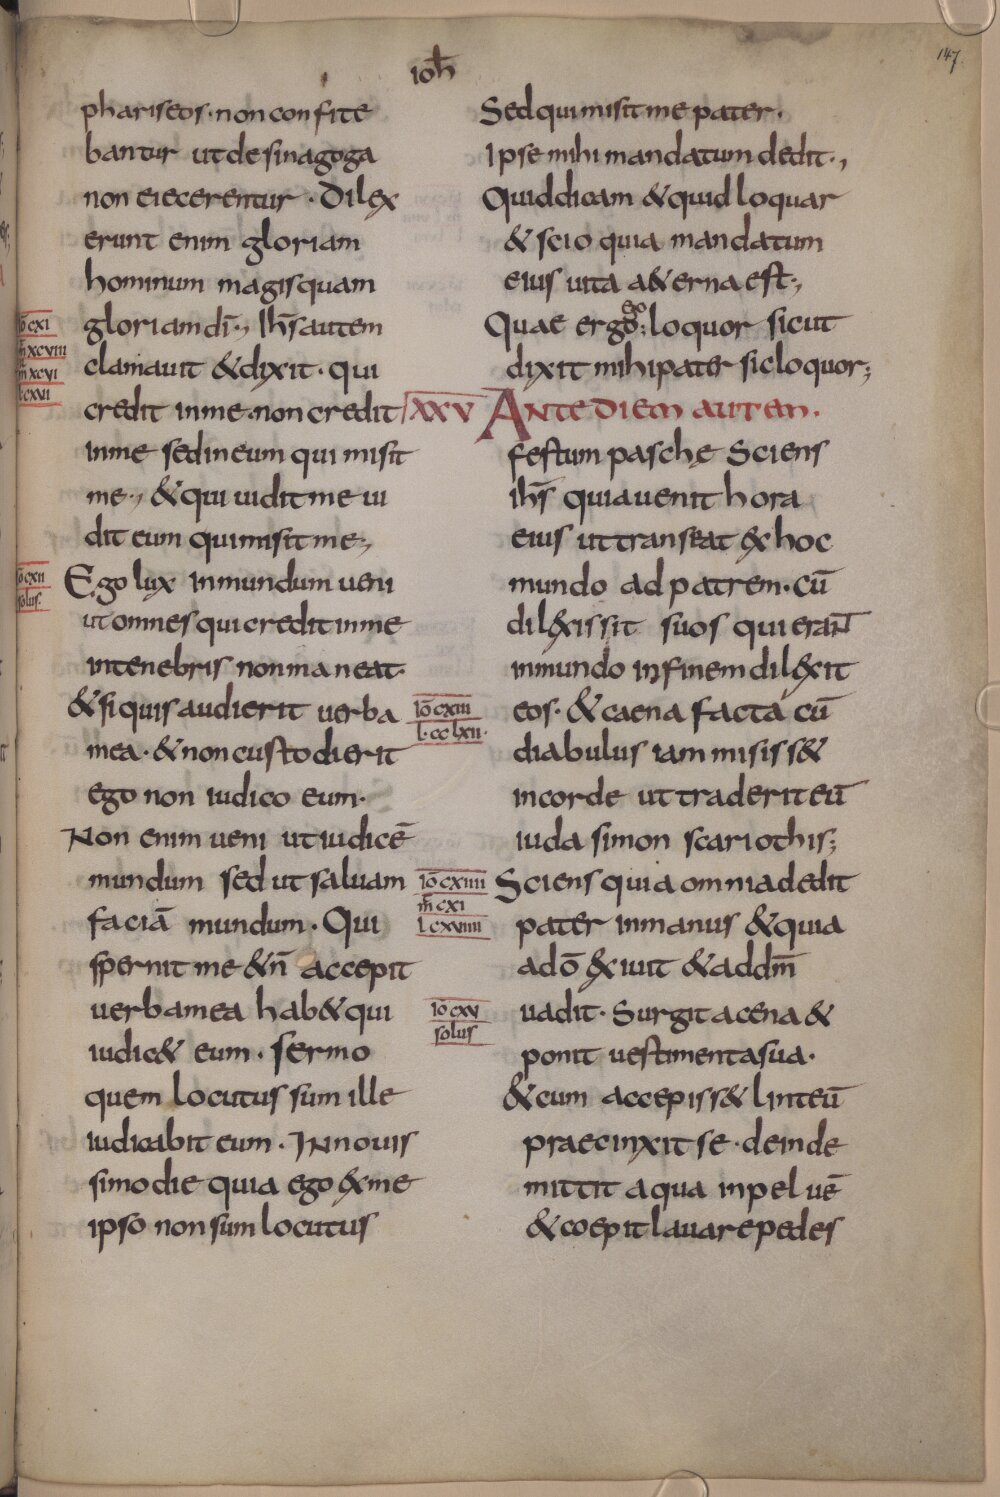 147
ioh̄
phariseos · non confite
bantur ut de sinagoga
non eiecerentur · Dilex
erunt enim gloriam
hominum magis quam
iō cxi
m̄ xcviii
m̄ xcvi
l · cxvii
gloriam dī ·, Ih̄s autem
clamauit & dixit · qui
credit inme · non credit
inme sed in eum qui misit
me ·, & qui uidit me ui
dit eum qui misit me ·,
iō cxii
solus ·
Ego lux inmundum ueni
ut omnes qui credit inme
intenebris non maneat ·
& si quis audierit uerba
mea · & non custodierit
ego non iudico eum ·
Non enim ueni ut iudicē
mundum sed ut saluam
faciā mundum · Qui
spernit me & n̄ accepit
uerba mea hab& qui
iudic& eum · sermo
quem locutus sum ille
iudicabit eum · In nouis
simo die quia ego &x me
ipso non sum locutus
Sed qui misit me pater ·
Ipse mihi mandatum dedit ·,
Quid dicam & quid loquar
& scio quia mandatum
eius uita a&erna est ·,
ego
Quae ergo ; loquor sicut
dixit mihi pater sic loquor ;
xxv Ante diem autem ·
festum paschę Sciens
ih̄s quia uenit hora
eius ut transeat &x hoc
mundo ad patrem · cū
dil&xissit suos qui erant
inmundo in finem dil&xit
iō cxiii
l · cclxii ·
eos · & caena facta cū
diabulus iam misiss&
incorde ut traderit eū
iuda simon scariothis ;
iō cxiiii
m̄ cxi
l cxviiii
Sciens quia omnia dedit
pater inmanus & quia
adō &xiuit & addm̄
iō cxv
solus
uadit · Surgit acena &
ponit uestimenta sua ·
& cum accepiss& linteū
praecinxit se · deinde
mittit aqua in peluē
& coepit lauare pedes